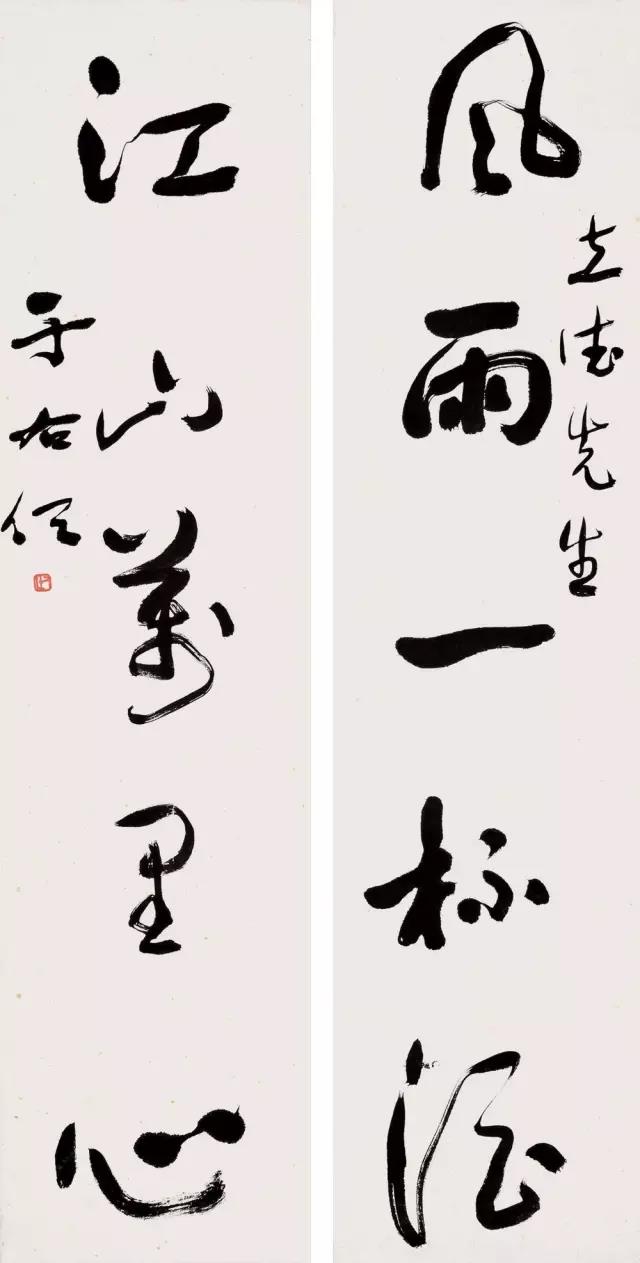 風雨一杯酒
立德先生
江山萬里心
于右任